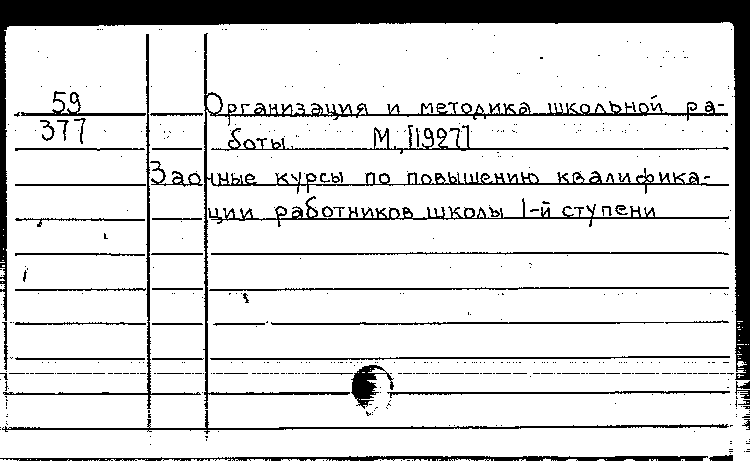 59
377
Организация и методика школьной ра-
боты. М., [1927]
Заочные курсы по повышению квалифика-
ции работников школы I-й ступени